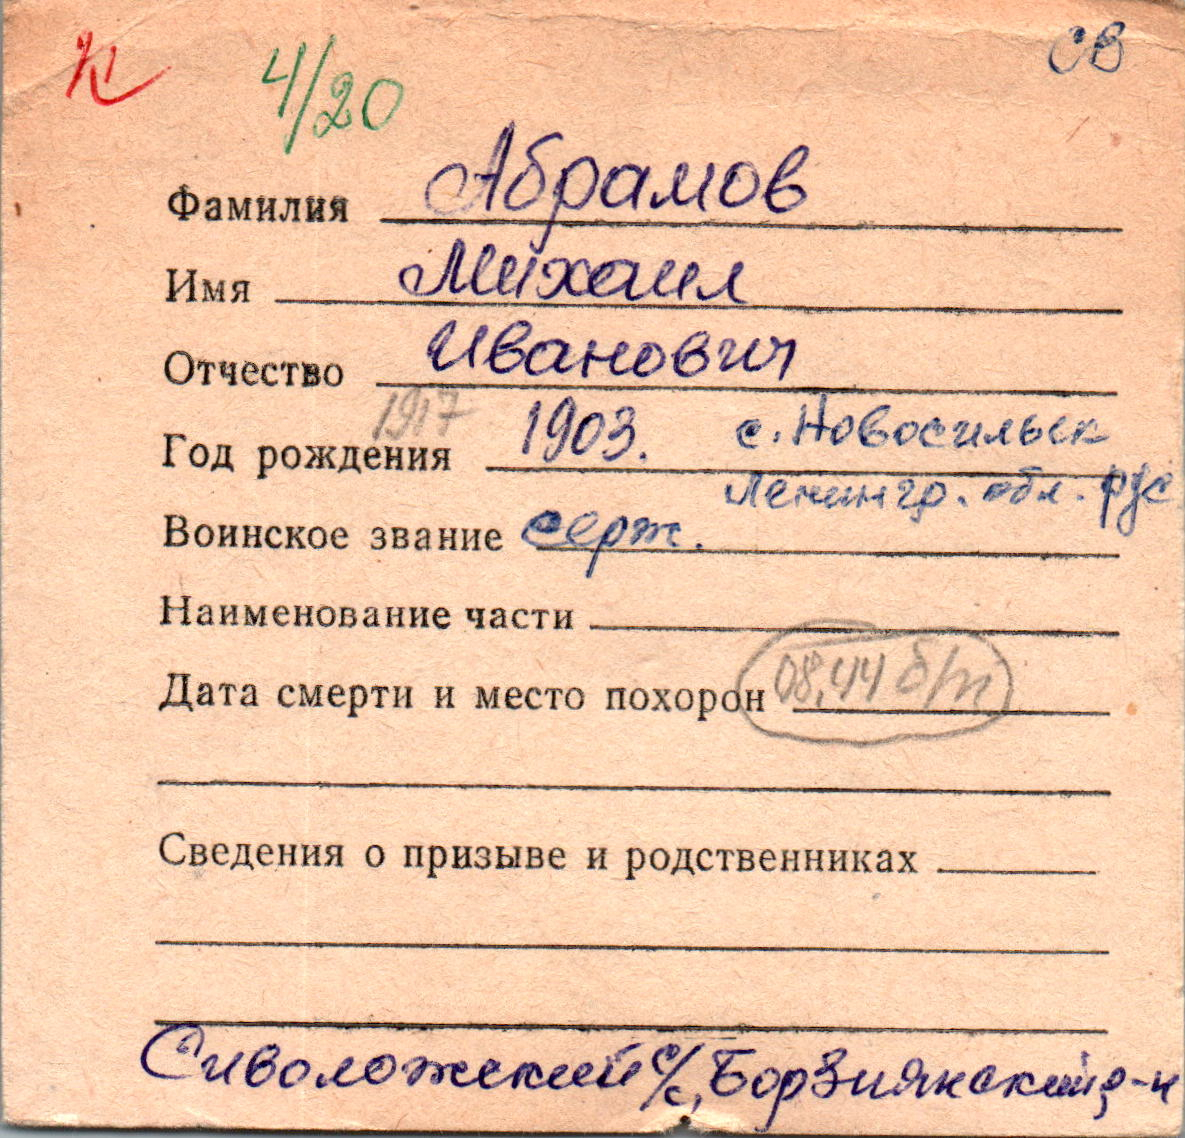 К 4/20 СВ
Фамилия Абрамов
Имя Михаил
Отчество Иванович
1917
Год рождения 1903. с. Новосильск
Ленингр. обл. рус
Воинское звание серж.
Наименование части
Дата смерти и место похорон 08.44 б/т
Сведения о призыве и родственниках
Сиволожский с/с, Борзнянский р-н